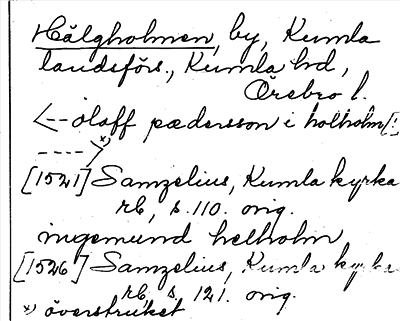 Hälgholmen, by, Kumla
landsförs., Kumla hd,
Örebro l.
<-- oloff pædersson i holholm [!]
----> x)
[1521] Samzelius, Kumla kyrka
rb, s. 110. orig.
ingemund helholm
[1526] Samzelius, Kumla kyrka
rb, s. 121. orig.
x) överstruket